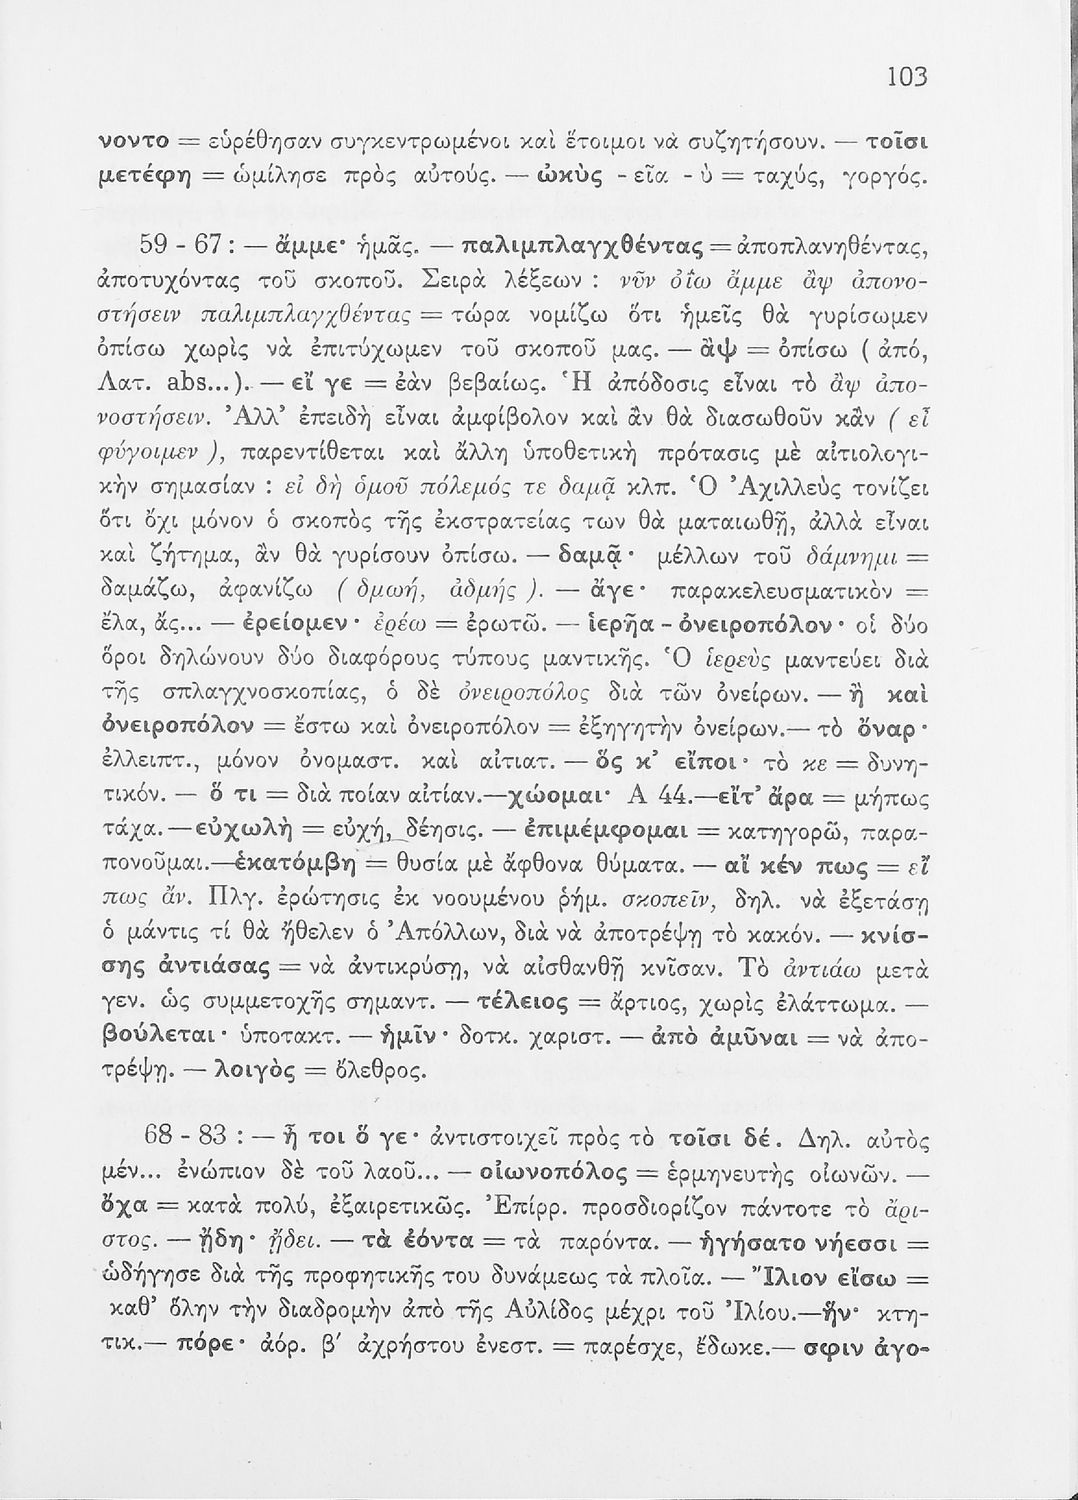 103
νοντο = εὑρέθησαν συγκεντρωμένοι καὶ ἕτοιμοι νὰ συζητήσουν. — τοῖσι
μετέφη = ὡμίλησε πρὸς αὐτούς. — ὠκὺς - εῖα - ὺ = ταχύς, γοργός.
59 - 67 : — ἄμμε· ἡμᾶς. — παλιμπλαγχθέντας = ἀποπλανηθέντας,
ἀποτυχόντας τοῦ σκοποῦ. Σειρὰ λέξεων : νῦν ὀΐω ἄμμε ἂψ ἀπονο-
στήσειν παλιμπλαγχθέντας = τώρα νομίζω ὅτι ἡμεῖς θὰ γυρίσωμεν
ὀπίσω χωρὶς νὰ ἐπιτύχωμεν τοῦ σκοποῦ μας. — ἂψ = ὀπίσω ( ἀπό,
Λατ. abs...). — εἴ γε = ἐὰν βεβαίως. Ἡ ἀπόδοσις εἶναι τὸ ἂψ ἀπο-
νοστήσειν. Ἀλλ' ἐπειδὴ εἶναι ἀμφίβολον καὶ ἂν θὰ διασωθοῦν κἂν ( εἴ
φύγοιμεν ), παρεντίθεται καὶ ἄλλη ὑποθετικὴ πρότασις μὲ αἰτιολογι-
κὴν σημασίαν : εἰ δὴ ὁμοῦ πόλεμός τε δαμᾷ κλπ. Ὁ Ἀχιλλεὺς τονίζει
ὅτι ὄχι μόνον ὁ σκοπὸς τῆς ἐκστρατείας των θὰ ματαιωθῇ, ἀλλὰ εἶναι
καὶ ζήτημα, ἂν θὰ γυρίσουν ὀπίσω. — δαμᾷ · μέλλων τοῦ δάμνημι =
δαμάζω, ἀφανίζω ( δμωή, ἀδμής ). — ἄγε · παρακελευσματικὸν =
ἔλα, ἄς... — ἐρείομεν · ἐρέω = ἐρωτῶ. — ἱερῆα - ὀνειροπόλον · οἱ δύο
ὅροι δηλώνουν δύο διαφόρους τύπους μαντικῆς. Ὁ ἱερεὺς μαντεύει διὰ
τῆς σπλαγχνοσκοπίας, ὁ δὲ ὀνειροπόλος διὰ τῶν ὀνείρων. — ἢ καὶ
ὀνειροπόλον = ἔστω καὶ ὀνειροπόλον = ἐξηγητὴν ὀνείρων.— τὸ ὄναρ ·
ἐλλειπτ., μόνον ὀνομαστ. καὶ αἰτιατ. — ὅς κ' εἴποι · τὸ κε = δυνη-
τικόν. — ὅ τι = διὰ ποίαν αἰτίαν.—χώομαι· Α 44.—εἴτ' ἄρα = μήπως
τάχα.—εὐχωλὴ = εὐχή, δέησις. — ἐπιμέμφομαι = κατηγορῶ, παρα-
πονοῦμαι.—ἑκατόμβη = θυσία μὲ ἄφθονα θύματα. — αἴ κέν πως = εἴ
πως ἄν. Πλγ. ἐρώτησις ἐκ νοουμένου ῥήμ. σκοπεῖν, δηλ. νὰ ἐξετάσῃ
ὁ μάντις τί θὰ ἤθελεν ὁ Ἀπόλλων, διὰ νὰ ἀποτρέψῃ τὸ κακόν. — κνίσ-
σης ἀντιάσας = νὰ ἀντικρύσῃ, νὰ αἰσθανθῇ κνῖσαν. Τὸ ἀντιάω μετὰ
γεν. ὡς συμμετοχῆς σημαντ. — τέλειος = ἄρτιος, χωρὶς ἐλάττωμα. —
βούλεται · ὑποτακτ. — ἡμῖν · δοτκ. χαριστ. — ἀπὸ ἀμῦναι = νὰ ἀπο-
τρέψῃ. — λοιγὸς = ὄλεθρος.
68 - 83 : — ἦ τοι ὅ γε · ἀντιστοιχεῖ πρὸς τὸ τοῖσι δέ. Δηλ. αὐτὸς
μέν... ἐνώπιον δὲ τοῦ λαοῦ... — οἰωνοπόλος = ἑρμηνευτὴς οἰωνῶν. —
ὄχα = κατὰ πολύ, ἐξαιρετικῶς. Ἐπίρρ. προσδιορίζον πάντοτε τὸ ἄρι-
στος. — ᾔδη · ᾔδει. — τὰ ἐόντα = τὰ παρόντα. — ἡγήσατο νήεσσι =
ὡδήγησε διὰ τῆς προφητικῆς του δυνάμεως τὰ πλοῖα. — Ἴλιον εἴσω =
καθ' ὅλην τὴν διαδρομὴν ἀπὸ τῆς Αὐλίδος μέχρι τοῦ Ἰλίου.—ἥν· κτη-
τικ.— πόρε · ἀόρ. β' ἀχρήστου ἐνεστ. = παρέσχε, ἔδωκε.— σφιν ἀγο-